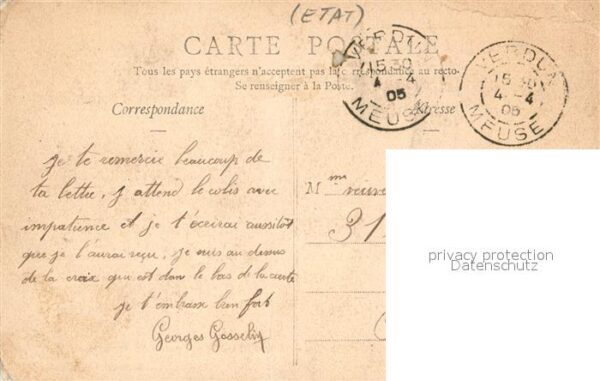 (ETAT)
CARTE POSTALE
Tous les pays étrangers n'acceptent pas la correspondance au recto.
Se renseigner à la Poste.
VERDUN
15 30
4 -4
05
MEUSE
VERDUN
15 30
4 -4
05
MEUSE
Correspondance
Adresse
je te remercie beaucoup de
ta lettre, j attend le colis avec
impatience et je t'écrirai aussitôt
que je l'aurai reçu, je suis au dessus
de la croix qui est dans le bas de la carte
je t'embrasse bien fort
Georges Gosselin
Mme veuve
31
privacy protection
Datenschutz